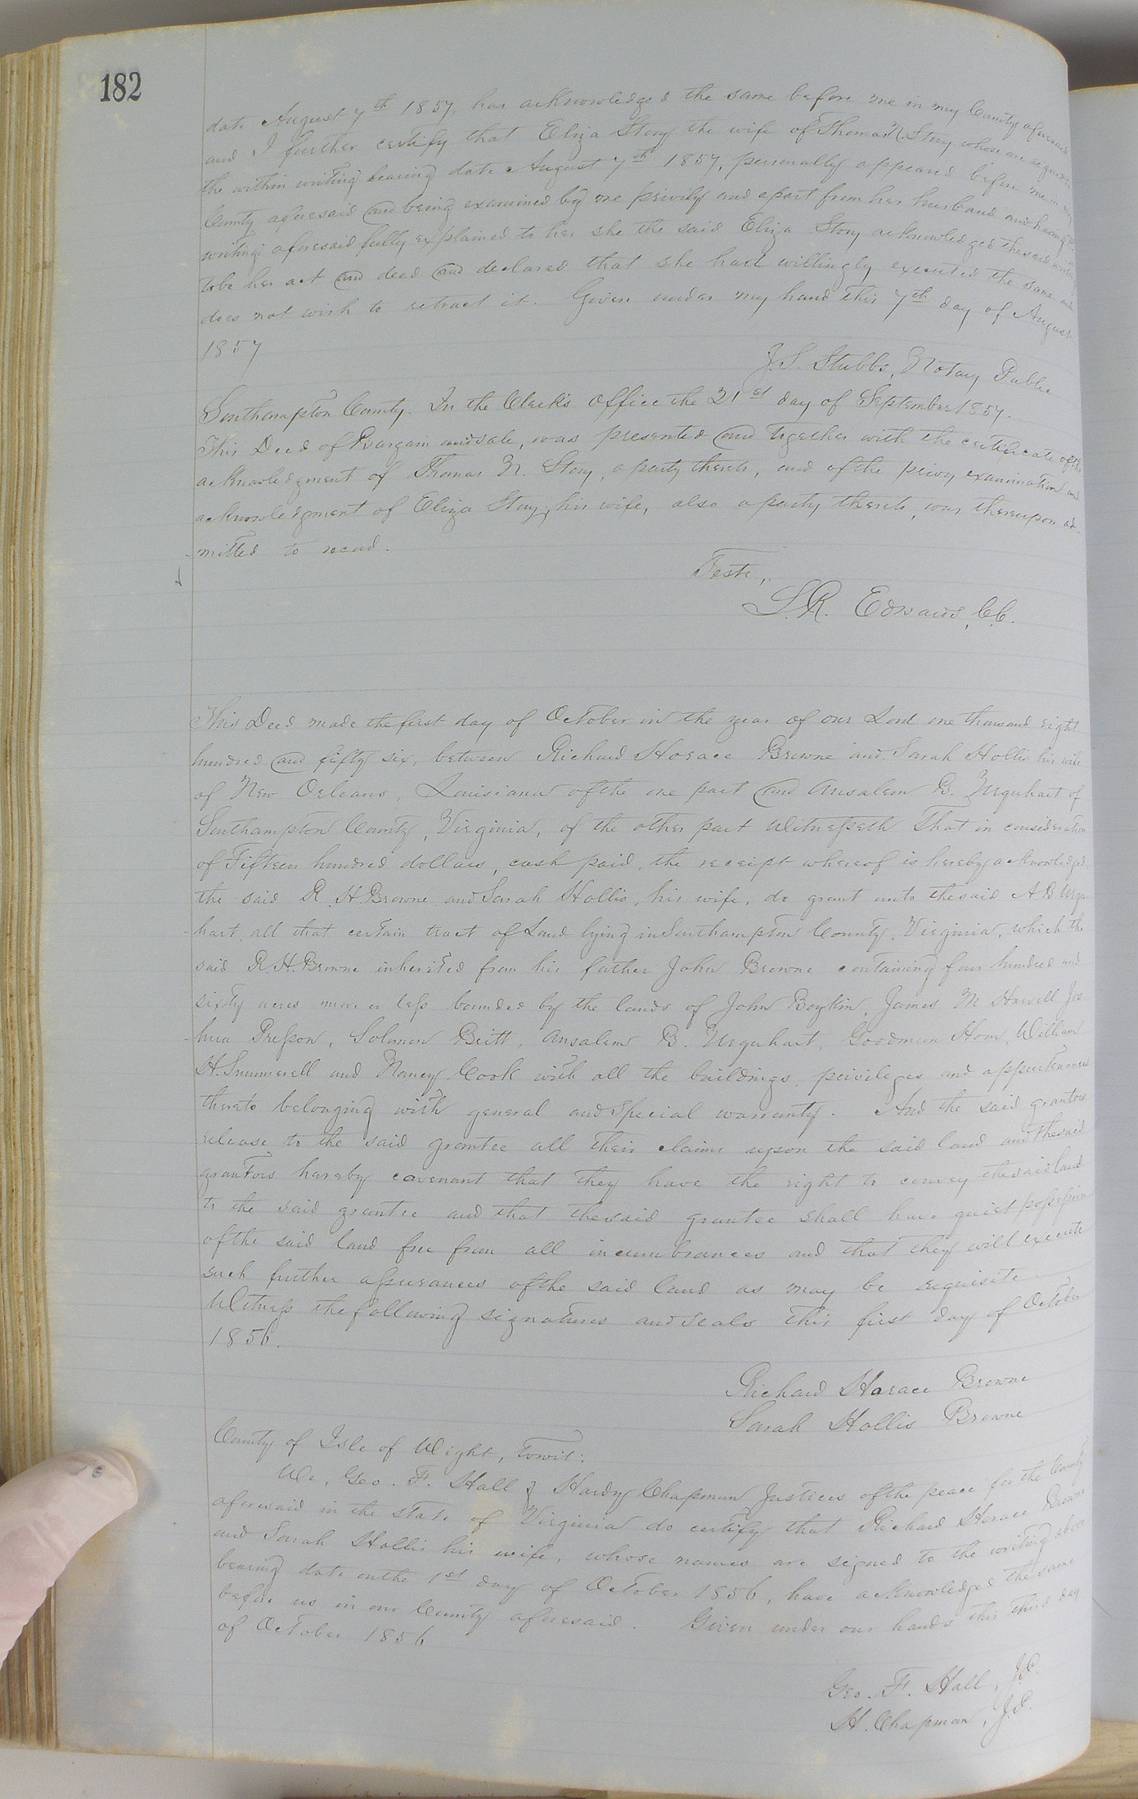 182
date August 7th 1857, has acknowledged the same before me in my County aforesaid
and I further certify that Eliza Story the wife of Thomas N. Story whose are signed
the within writing bearing date August 7th 1857, personally appeared before me in
County aforesaid and being examined by me privily and apart from her husband and having
writing aforesaid fully explained to her she the said Eliza Story acknowledged the said
to be her act and deed and declared that she had willingly executed the same and
does not wish to retract it. Given under my hand this 7th day of August
1857
J. S. Stubbs, Notary Public
Southampton County. In the Clerk's Office the 21st day of September 1857.
This Deed of Bargain and sale, was presented and together with the certificate of the
acknowledgment of Thomas N. Story, a party thereto, and of the privy examination and
acknowledgment of Eliza Story, his wife, also a party thereto, was thereupon ad-
mitted to record.
Teste,
L. R. Edwards, C.C.
This Deed made the first day of October in the year of our Lord one thousand eight
hundred and fifty six, between Richard Horace Browne and Sarah Hollis his wife
of New Orleans, Louisiana of the one part and Ansalem B. Urquhart of
Southampton County, Virginia, of the other part Witnesseth That in consideration
of Fifteen hundred dollars, cash paid, the receipt whereof is hereby acknowledged
the said R. H. Browne and Sarah Hollis, his wife, do grant unto the said A. B. Urqu-
hart, all that certain tract of Land lying in Southampton County, Virginia, which the
said R. H. Browne inherited from his father John Browne containing four hundred and
sixty acres more or less bounded by the lands of John Boykin, James M. Harvell, Jos-
hua Presson, Solomon Britt, Ansalem B. Urquhart, Goodman Horn, William
H. Summerell and Nancy Cook with all the buildings, privileges and appurtenances
thereto belonging with general and special warranty. And the said grantors
release to the said grantee all their claims upon the said land and the said
grantors hereby covenant that they have the right to convey the said land
to the said grantee and that the said grantee shall have quiet possession
of the said land free from all incumbrances and that they will execute
such further assurances of the said land as may be requisite
Witness the following signatures and seals this first day of October
1856.
Richard Horace Browne
Sarah Hollis Browne
County of Isle of Wight, towit:
We, Geo. F. Hall & Hardy Chapman Justices of the peace for the County
aforesaid in the state of Virginia do certify that Richard Horace Browne
and Sarah Hollis his wife, whose names are signed to the writing above
bearing date on the 1st day of October 1856, have acknowledged the same
before us in our County aforesaid. Given under our hands this third day
of October 1856
Geo. F. Hall, J.P.
H. Chapman, J.P.